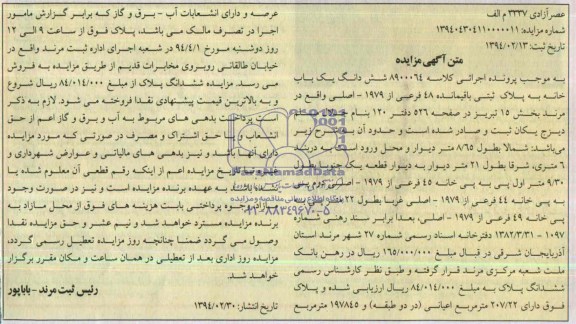 عصر آزادی ۳۳۳۷ م الف
شماره مزایده: ۱۳۹۴۰۴۳۰۴۱۱۰۰۰۰۰۱۱
تاریخ ثبت: ۱۳۹۴/۰۲/۱۳
متن آگهی مزایده
به موجب پرونده اجرائی کلاسه ۸۹۰۰۰۶۴ شش دانگ یک باب
خانه به پلاک ثبتی باقیمانده ۴۸ فرعی از ۱۹۷۹ - اصلی واقع در
مرند بخش ۱۵ تبریز در صفحه ۵۲۶ دفتر ۱۲۰ بنام
دیزج یکان ثبت و صادر شده است و حدود آن بشرح زیر
میباشد: شمالا بطول ۸/۶۵ متر دیوار و محل ورود است به دربند
۶ متری، شرقا بطول ۲۱ متر دیوار به دیوار قطعه یک جنوبا بطول
۹/۳۰ متر اول پی به پی خانه ۴۵ فرعی از ۱۹۷۹ - اصلی دوم پی
به پی خانه ۴۴ فرعی از ۱۹۷۹ - اصلی غربا بطول ۲۲ متر
پی خانه ۴۹ فرعی از ۱۹۷۹ - اصلی، بعدا برابر سند رهنی شماره
۱۰۹۷ - ۱۳۸۲/۳/۳۱ دفترخانه اسناد رسمی شماره ۲۷ شهر مرند استان
آذربایجان شرقی در قبال مبلغ ۱۶۵/۰۰۰/۰۰۰ ریال در رهن بانک
ملت شعبه مرکزی مرند قرار گرفته و طبق نظر کارشناس رسمی
ششدانگ پلاک به مبلغ ۸۴/۰۱۴/۰۰۰ ریال ارزیابی شده و پلاک
فوق دارای ۲۰۷/۲۲ مترمربع اعیانی (در دو طبقه) و ۱۹۷۸۴۵ مترمربع
عرصه و دارای انشعابات آب - برق و گاز که برابر گزارش مامور
اجرا در تصرف مالک می باشد، پلاک فوق از ساعت ۹ الی ۱۲
روز دوشنبه مورخ ۹۴/۴/۱ در شعبه اجرای اداره ثبت مرند واقع در
خیابان طالقانی روبروی مخابرات قدیم از طریق مزایده به فروش
می رسد. مزایده ششدانگ پلاک از مبلغ ۸۴/۰۱۴/۰۰۰ ریال شروع
و به بالاترین قیمت پیشنهادی نقدا فروخته می شود. لازم به ذکر
است پرداخت بدهی های مربوط به آب و برق و گاز اعم از حق
انشعاب و یا حق اشتراک و مصرف در صورتی که مورد مزایده
دارای آنها باشد و نیز بدهی های مالیاتی و عوارض شهرداری و
تاریخ مزایده اعم از اینکه رقم قطعی آن معلوم شده یا
به عهده برنده مزایده است و نیز در صورت وجود
وجوه پرداختی بابت هزینه های فوق از محل مازاد به
برنده مزایده مسترد خواهد شد و نیم عشر و حق مزایده نقدا
وصول می گردد ضمنا چنانچه روز مزایده تعطیل رسمی گردد،
مزایده روز اداری بعد از تعطیلی در همان ساعت و مکان مقرر برگزار
خواهد شد.
رئیس ثبت مرند - باباپور
تاریخ انتشار: ۱۳۹۴/۰۲/۳۰
ParsNamadData
پایگاه اطلاع رسانی مناقصه و مزایده
۰۲۱-۸۸۳۴۹۶۷۰-۵